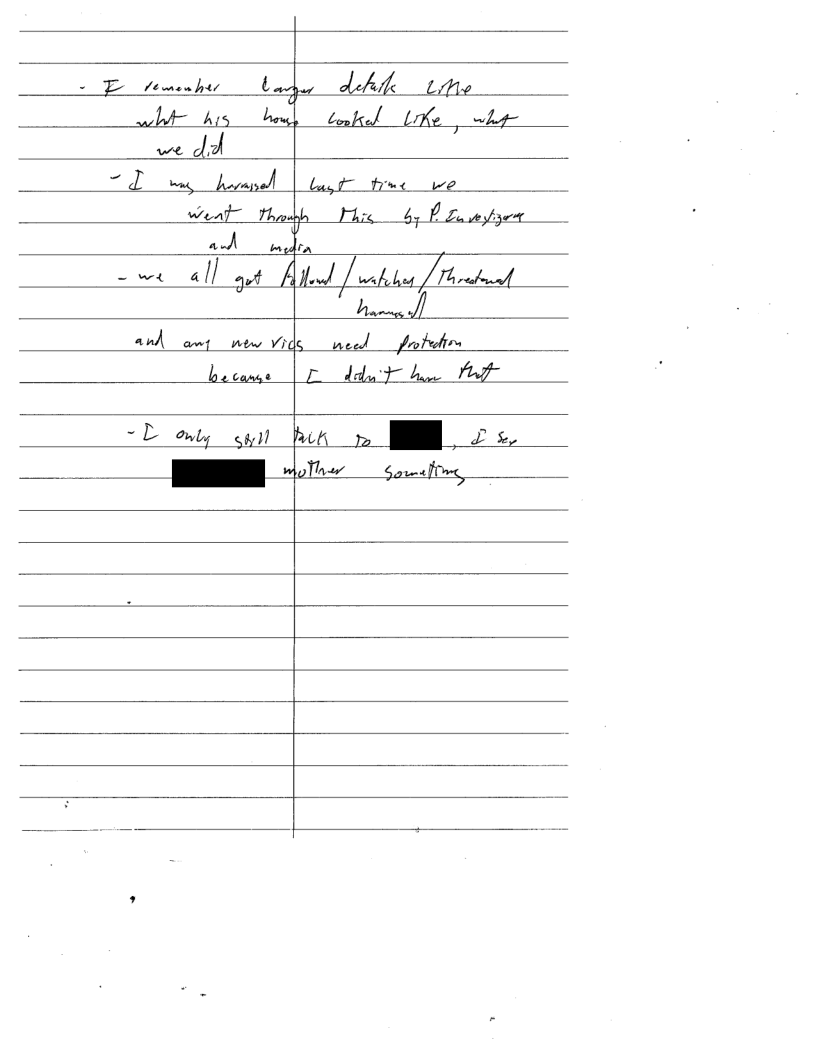 - I remember larger details like
what his house looked like, what
we did
- I was harassed last time we
went through this by P. Investigator
and media
- we all got followed/watched/threatened
harrassed
and any new vics need protection
because I didn't have that
- I only still talk to , I see
mother sometimes